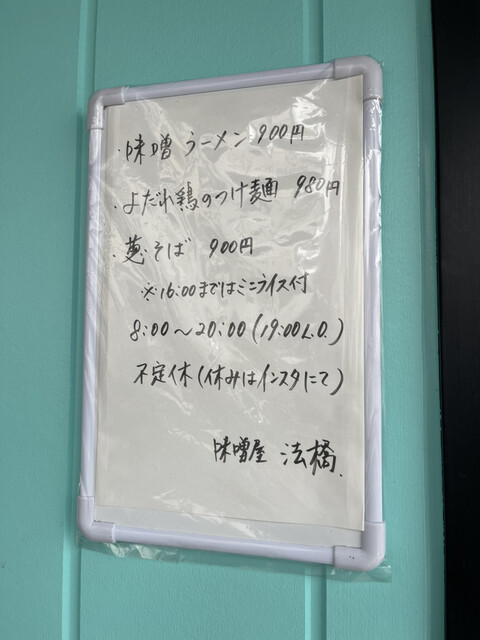 ・味噌ラーメン 900円
・よだれ鶏のつけ麺 980円
・葱そば 900円
※16:00まではミニライス付
8:00〜20:00(19:00L.O.)
不定休(休みはインスタにて)
味噌屋 法橋.